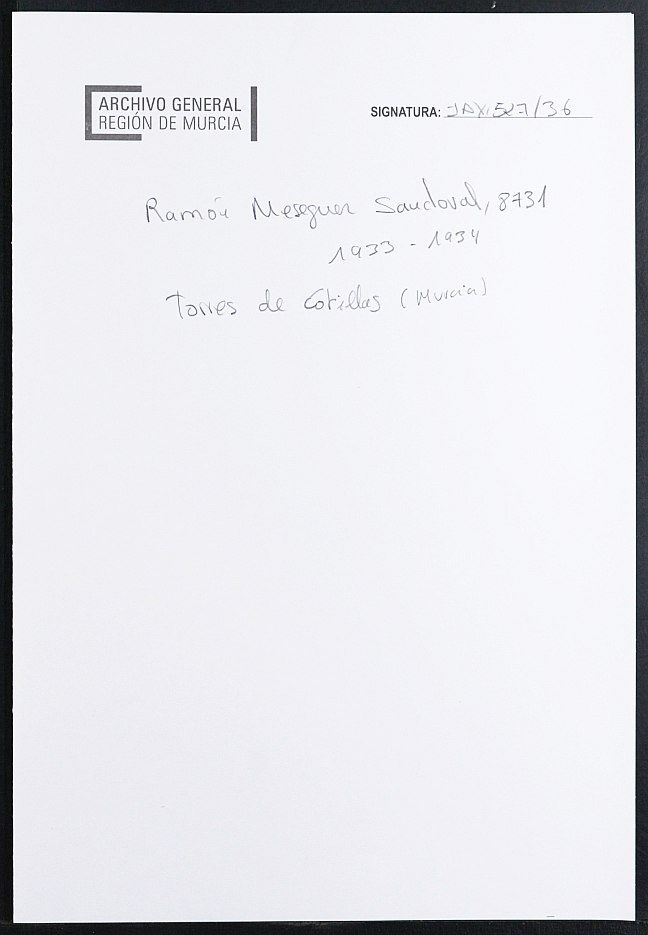 ARCHIVO GENERAL
REGIÓN DE MURCIA
SIGNATURA: JAX,527/36
Ramón Meseguer Sandoval, 8731
1933 - 1934
Torres de Cotillas (Murcia)